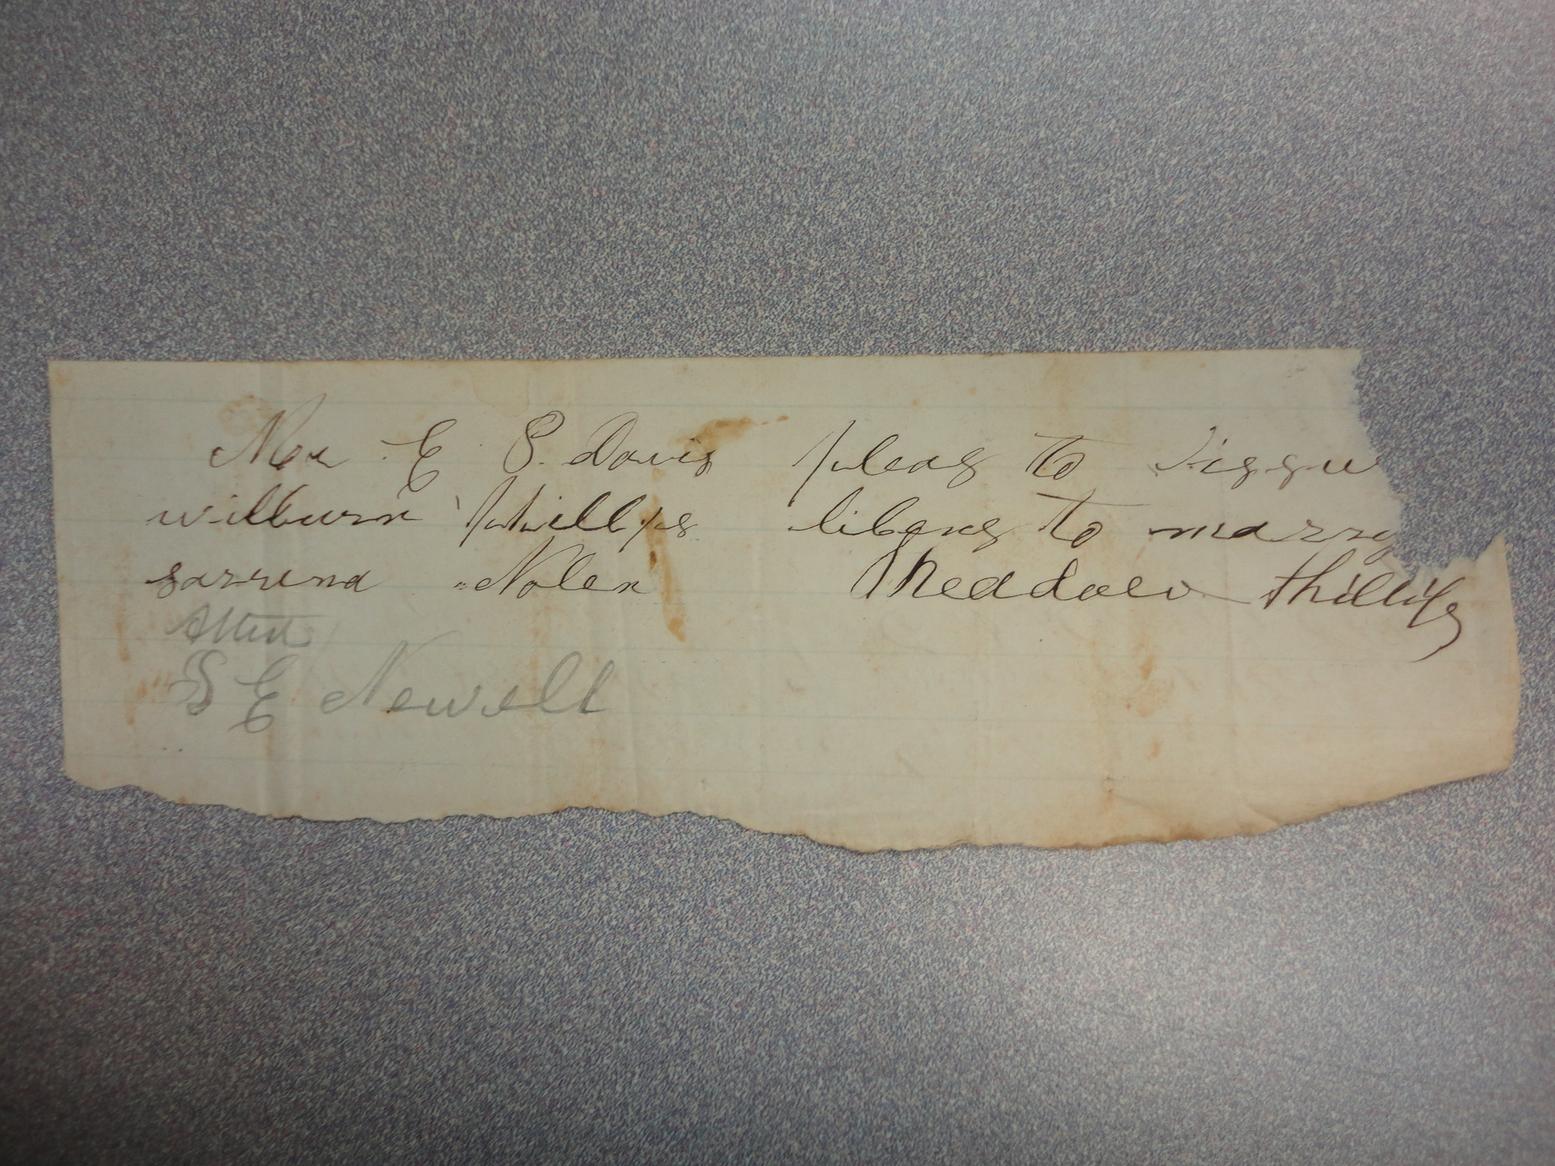 Mr E S. Davis pleas to issu
wilburn Phillips libens to marry
sarrena Nolen Theddoev Phillips
Attest
S E Newell